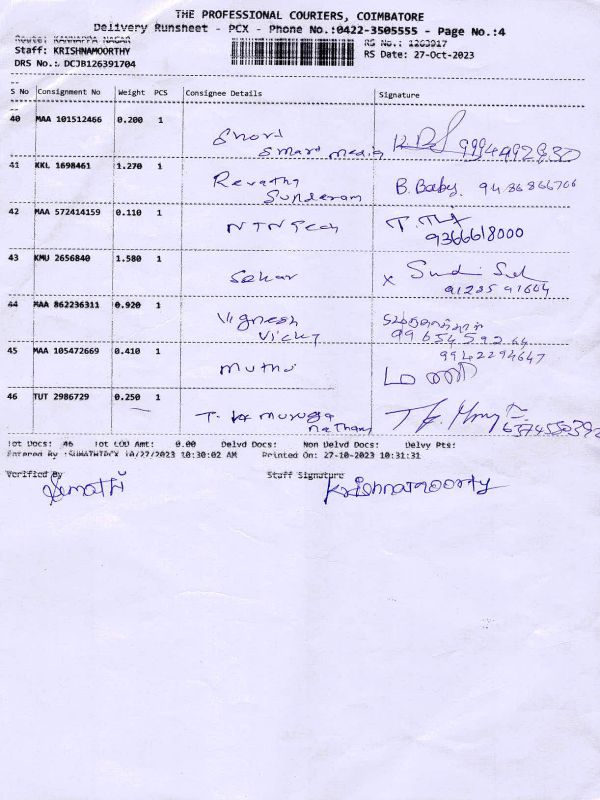 THE PROFESSIONAL COURIERS, COIMBATORE
Delivery Runsheet - PCX - Phone No.:0422-3505555 - Page No.:4
Route: KANNAPPA NAGAR RS No.: 1263917
Staff: KRISHNAMOORTHY RS Date: 27-Oct-2023
DRS No.: DCJB126391704
S No Consignment No Weight PCS Consignee Details Signature
40 MAA 101512466 0.200 1
Short
Smart media
41 KKL 1698461 1.270 1
Revathy B. Baby. 9486866706
Sunderam
42 MAA 572414159 0.110 1
NTN Tech
9366618000
43 KMU 2656840 1.580 1
Sekar x
91235 91604
44 MAA 862236311 0.920 1
Vignesh
Vicky 99654592 64
45 MAA 105472669 0.410 1 9942294647
Muthu
46 TUT 2986729 0.250 1
T. Muruga
nathan
Tot Docs: 46 Tot COD Amt: 0.00 Delvd Docs: Non Delvd Docs: Delvy Pts:
Entered By :SUMATHIPCX 10/27/2023 10:30:02 AM Printed On: 27-10-2023 10:31:31
Verified By Staff Signature
Sumathi Krishnamoorty